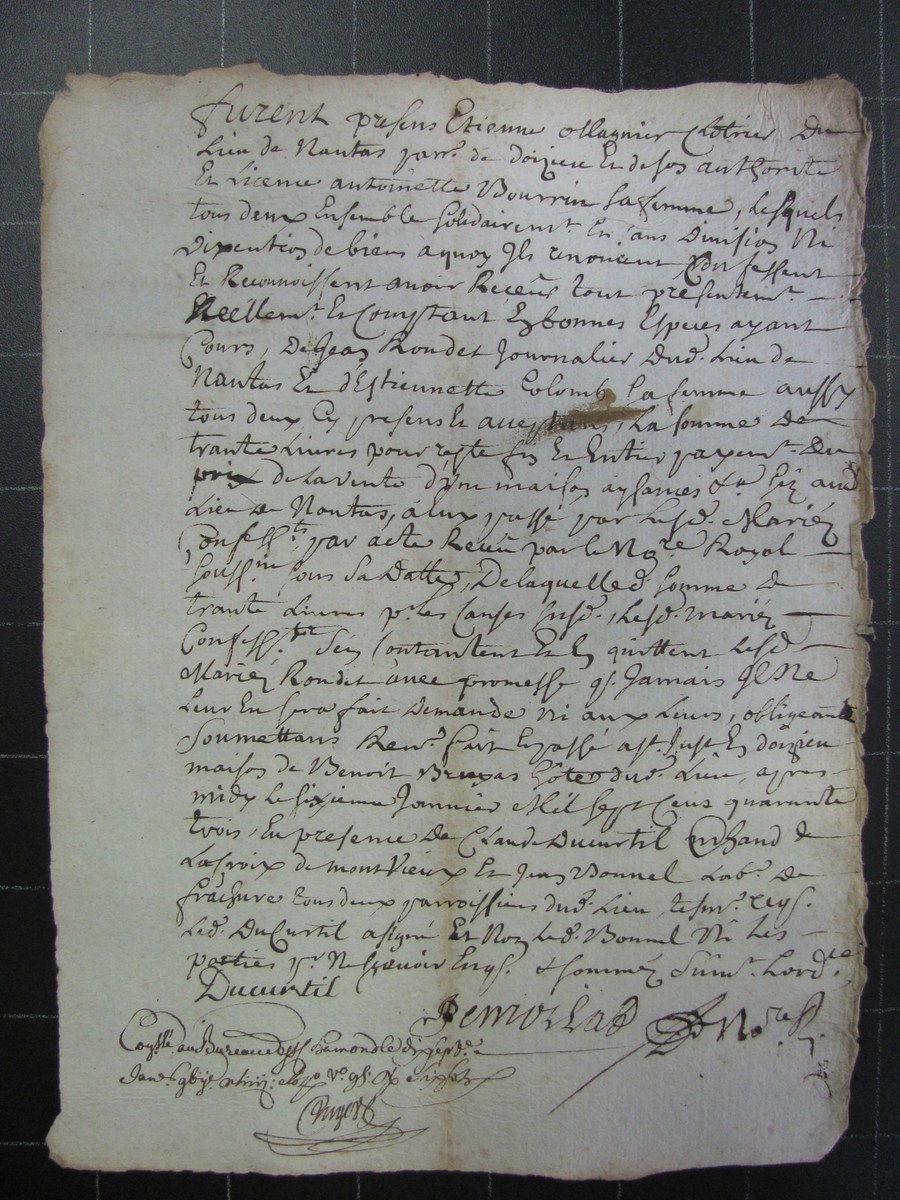 furent presens Etienne Magnier Clotrier Du
Lieu de Nantas parr. de doizieu Et de son authorité
Et Licence antoinette Bourrin Sa femme, lesquels
tous deux Ensemble solidairemt. Et sans Division Ni
Discution de biens a quoy Ils renoncent Confessent
Et Reconnoissent avoir Receus tout presentemt.
Réellemt. Et Comptant En bonnes Especes ayant
Cours, De Jean Rondet Journalier Dud. Lieu de
Nantas Et d'Estiennette Colomb sa femme aussy
tous deux Cy presens & acceptans, La somme de
trante Livres pour reste fin Et Entier payemt. Du
prix De la vente D'une maison aysances &a. size aud
Lieu de Nantas, à Eux passé par Lesd. Mariéz
Confessts. par acte Receu par le Nore. Royal
soussné. sous Sa Datte, De laquelle d. somme de
trante Livres pr. les Causes susd. Lesd. mariéz
Confessts. Se Contentent Et En quittent Lesd
Mariéz Rondet avec promesse q. Jamais Il Ne
Leur En sera fait Demande Ni aux Leurs, obligeants
Soumettans Renon. fait Et passé aud. doizieu
maison de Benoit hôte dud. Lieu, apres
midy Le sixieme Janvier Mil sept Cens quarante
trois, En presence De Claude Ducurtil mchand de
La Croix de montvieux Et Jean Bonnel Labr. De
tous deux parroissiens dud. Lieu, tesm. reqs.
Led. Ducurtil a signé Et Non Led. Bonnel Ni Les
parties pr. Ne sçavoir Enqs. & sommés suivt. Lord.ce
Ducurtil
Nore. R.
Conllé au Bureau de St chamond le dix sept